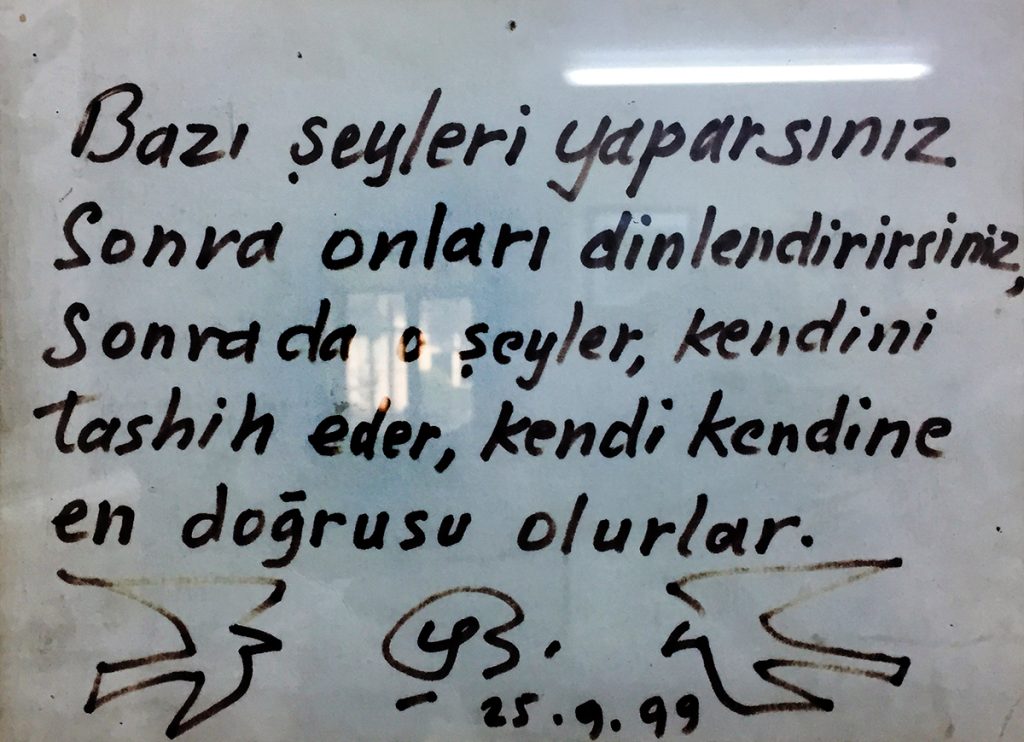 Bazı şeyleri yaparsınız.
Sonra onları dinlendirirsiniz,
Sonra da o şeyler, kendini
tashih eder, kendi kendine
en doğrusu olurlar.
25.9.99